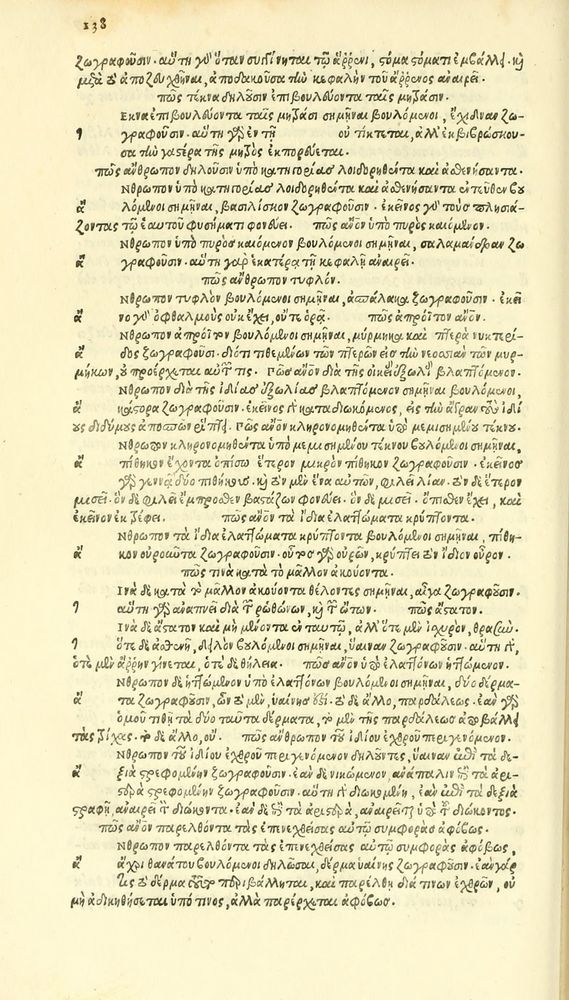 138
ζωγραφοῦσιν. αὕτη γὰρ ὅταν συγγίνηται τῷ ἄῤῥενι, στόμα στόματι ἐμβάλλει. καὶ
μετὰ τὸ ἀποζευχθῆναι, ἀποδακοῦσα τὴν κεφαλὴν τοῦ ἄῤῥενος ἀναιρεῖ.
πῶς τέκνα δηλοῦσιν ἐπιβουλεύοντα ταῖς μητράσιν.
Εκνα ἐπιβουλεύοντα ταῖς μητράσι σημῆναι βουλόμενοι, ἔχιδναν ζω-
τ γραφοῦσιν. αὕτη γὰρ ἐν τῇ οὐ τίκτεται, ἀλλ' ἐκβιβρώσκου-
σα τὴν γαστέρα τῆς μητρὸς ἐκπορεύεται.
πῶς ἄνθρωπον δηλοῦσιν ὑπὸ κατηγορίας λοιδορηθέντα καὶ ἀσθενήσαντα.
Νθρωπον ὑπὸ κατηγορίας λοιδορηθέντα καὶ ἀσθενήσαντα ἐντεῦθεν βου
ἄ λόμενοι σημῆναι, βασιλίσκον ζωγραφοῦσιν. ἐκεῖνος γὰρ τοὺς πλησιά-
ζοντας τῷ ἑαυτοῦ φυσήματι φονεύει. πῶς ἄνον ὑπὸ πυρὸς καιόμενον.
Νθρωπον ὑπὸ πυρὸς καιόμενον βουλόμενοι σημῆναι, σαλαμάνδραν ζω
ἄ γραφοῦσιν. αὕτη γὰρ ἑκατέρᾳ τῇ κεφαλῇ ἀναιρεῖ.
πῶς ἄνθρωπον τυφλόν.
Νθρωπον τυφλὸν βουλόμενοι σημῆναι, ἀσπάλακα ζωγραφοῦσιν. ἐκεῖ
ἄ νο γὰρ ὀφθαλμοὺς οὐκ ἔχει, οὔτε ὁρᾷ. πῶς ἀπρόϊτον ἄνον.
Νθρωπον ἀπρόϊτον βουλόμενοι σημῆναι, μύρμηκα καὶ πτερὰ νυκτερί-
ἄ δος ζωγραφοῦσι. διότι τιθεμένων τῶν πτερῶν εἰς τὴν νεοσσιὰν τῶν μυρ-
μήκων, οὐ προέρχεται αὐτῶν τις. Πῶς ἄνον διὰ τῆς οἰκείας ἐξωλείας βλαπτόμενον.
Νθρωπον διὰ τῆς ἰδίας ἐξωλείας βλαπτόμενον σημῆναι βουλόμενοι,
ἄ κάστορα ζωγραφοῦσιν. ἐκεῖνος γὰρ καταδιωκόμενος, εἰς τὴν ἄγραν τοὺς ἰδί
ους διδύμους ἀποσπῶν ῥίπτει. Πῶς ἄνον κληρονομηθέντα ὑπὸ μεμισημένου τέκνου.
Νθρωπον κληρονομηθέντα ὑπὸ μεμισημένου τέκνου βουλόμενοι σημῆναι,
ἄ πίθηκον ἔχοντα ὀπίσω ἕτερον μικρὸν πίθηκον ζωγραφοῦσιν. ἐκεῖνος
γὰρ γεννᾷ δύο πιθήκους. καὶ τὸν μὲν ἕνα αὐτῶν, φιλεῖ λίαν. τὸν δὲ ἕτερον
μισεῖ. ὃν δὲ φιλεῖ ἔμπροσθεν βαστάζων φονεύει. ὃν δὲ μισεῖ. ὄπισθεν ἔχει, καὶ
ἐκεῖνον ἐκτρέφει. πῶς ἄνον τὰ ἴδια ἐλαττώματα κρύπτοντα.
Νθρωπον τὰ ἴδια ἐλαττώματα κρύπτοντα βουλόμενοι σημῆναι, πίθη-
ἄ κον οὐροῦντα ζωγραφοῦσιν. οὗτος γὰρ οὐρῶν, κρύπτει τὸν ἴδιον οὖρον.
πῶς τινὰ κατὰ τὸ μᾶλλον ἀκούοντα.
Ινὰ δὲ κατὰ τὸ μᾶλλον ἀκούοντα θέλοντες σημῆναι, αἶγα ζωγραφοῦσιν.
τ αὕτη γὰρ ἀναπνεῖ διὰ τῶν ῥωθώνων, καὶ τῶν ὤτων. πῶς ἄστατον.
Ινὰ δὲ ἄστατον καὶ μὴ μένοντα ἐν ταυτῷ, ἀλλ' ὁτὲ μὲν ἰσχυρὸν, θρασὺν.
τ ὁτὲ δὲ ἀσθενῆ, δηλῶσαι βουλόμενοι σημῆναι, ὕαιναν ζωγραφοῦσιν. αὕτη γὰρ,
ὁτὲ μὲν ἄῤῥην γίνεται, ὁτὲ δὲ θήλεια. πῶς ἄνον ὑπὸ ἐλαττόνων ἡττώμενον.
Νθρωπον δὲ ἡττώμενον ὑπὸ ἐλαττόνων βουλόμενοι σημῆναι, δύο δέρμα-
ἄ τα ζωγραφοῦσιν, ὧν τὸ μὲν, ὑαίνης ἐστὶ. τὸ δὲ ἄλλο, παρδάλεως. ἐὰν γὰρ
ὁμοῦ τιθῇ τὰ δύο ταῦτα δέρματα, τὸ μὲν τῆς παρδάλεως ἀποβάλλει
τὰς τρίχας. τὸ δὲ ἄλλο, οὔ. πῶς ἄνθρωπον τοῦ ἰδίου ἐχθροῦ περιγενόμενον.
Νθρωπον τοῦ ἰδίου ἐχθροῦ περιγενόμενον δηλοῦντες, ὕαιναν ἐπὶ τὰ δε-
ἄ ξιὰ στρεφομένην ζωγραφοῦσιν. ἐὰν δὲ νικώμενον, ἀνάπαλιν ἐπὶ τὰ ἀρι-
στερὰ στρεφομένην ζωγραφοῦσιν. αὕτη γὰρ διωκομένη, ἐὰν ἐπὶ τὰ δεξιὰ
στραφῇ, ἀναιρεῖ τὸν διώκοντα. ἐὰν δὲ ἐπὶ τὰ ἀριστερὰ, ἀναιρεῖται ὑπὸ τοῦ διώκοντος.
πῶς ἄνον παρελθόντα τὰς ἐπενεχθείσας αὐτῷ συμφορὰς ἀφόβως.
Νθρωπον παρελθόντα τὰς ἐπενεχθείσας αὐτῷ συμφορὰς ἀφόβως,
ἄ ἄχρι θανάτου βουλόμενοι δηλῶσαι, δέρμα ὑαίνης ζωγραφοῦσιν. ἐὰν γάρ
τις τὸ δέρμα τοῦτο περιβάλληται, καὶ παρέλθῃ διά τινων ἐχθρῶν, οὐ
μὴ ἀδικηθήσεται ὑπό τινος, ἀλλὰ παρέρχεται ἀφόβως.